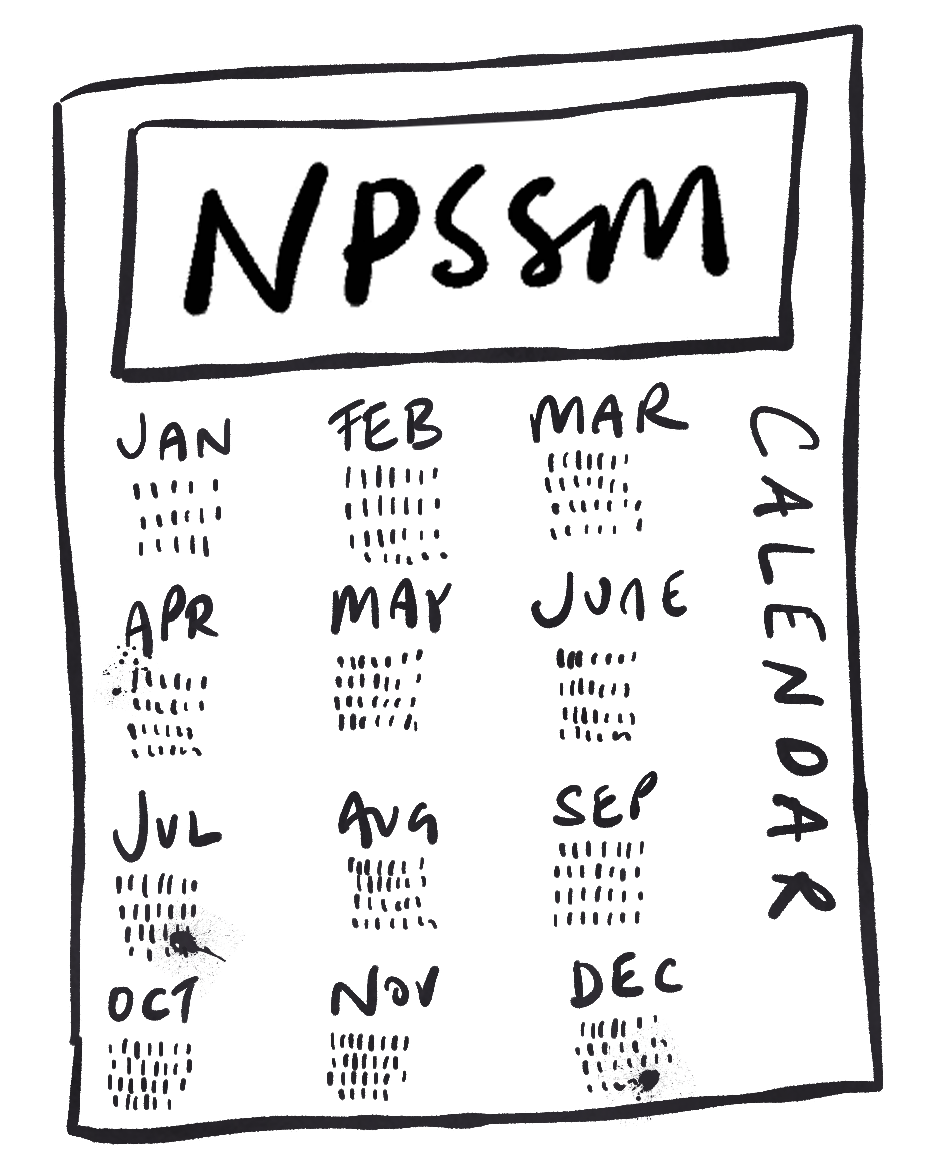 NPSSM
JAN FEB MAR
APR MAY JUNE
JUL AUG SEP
OCT NOV DEC
CALENDAR